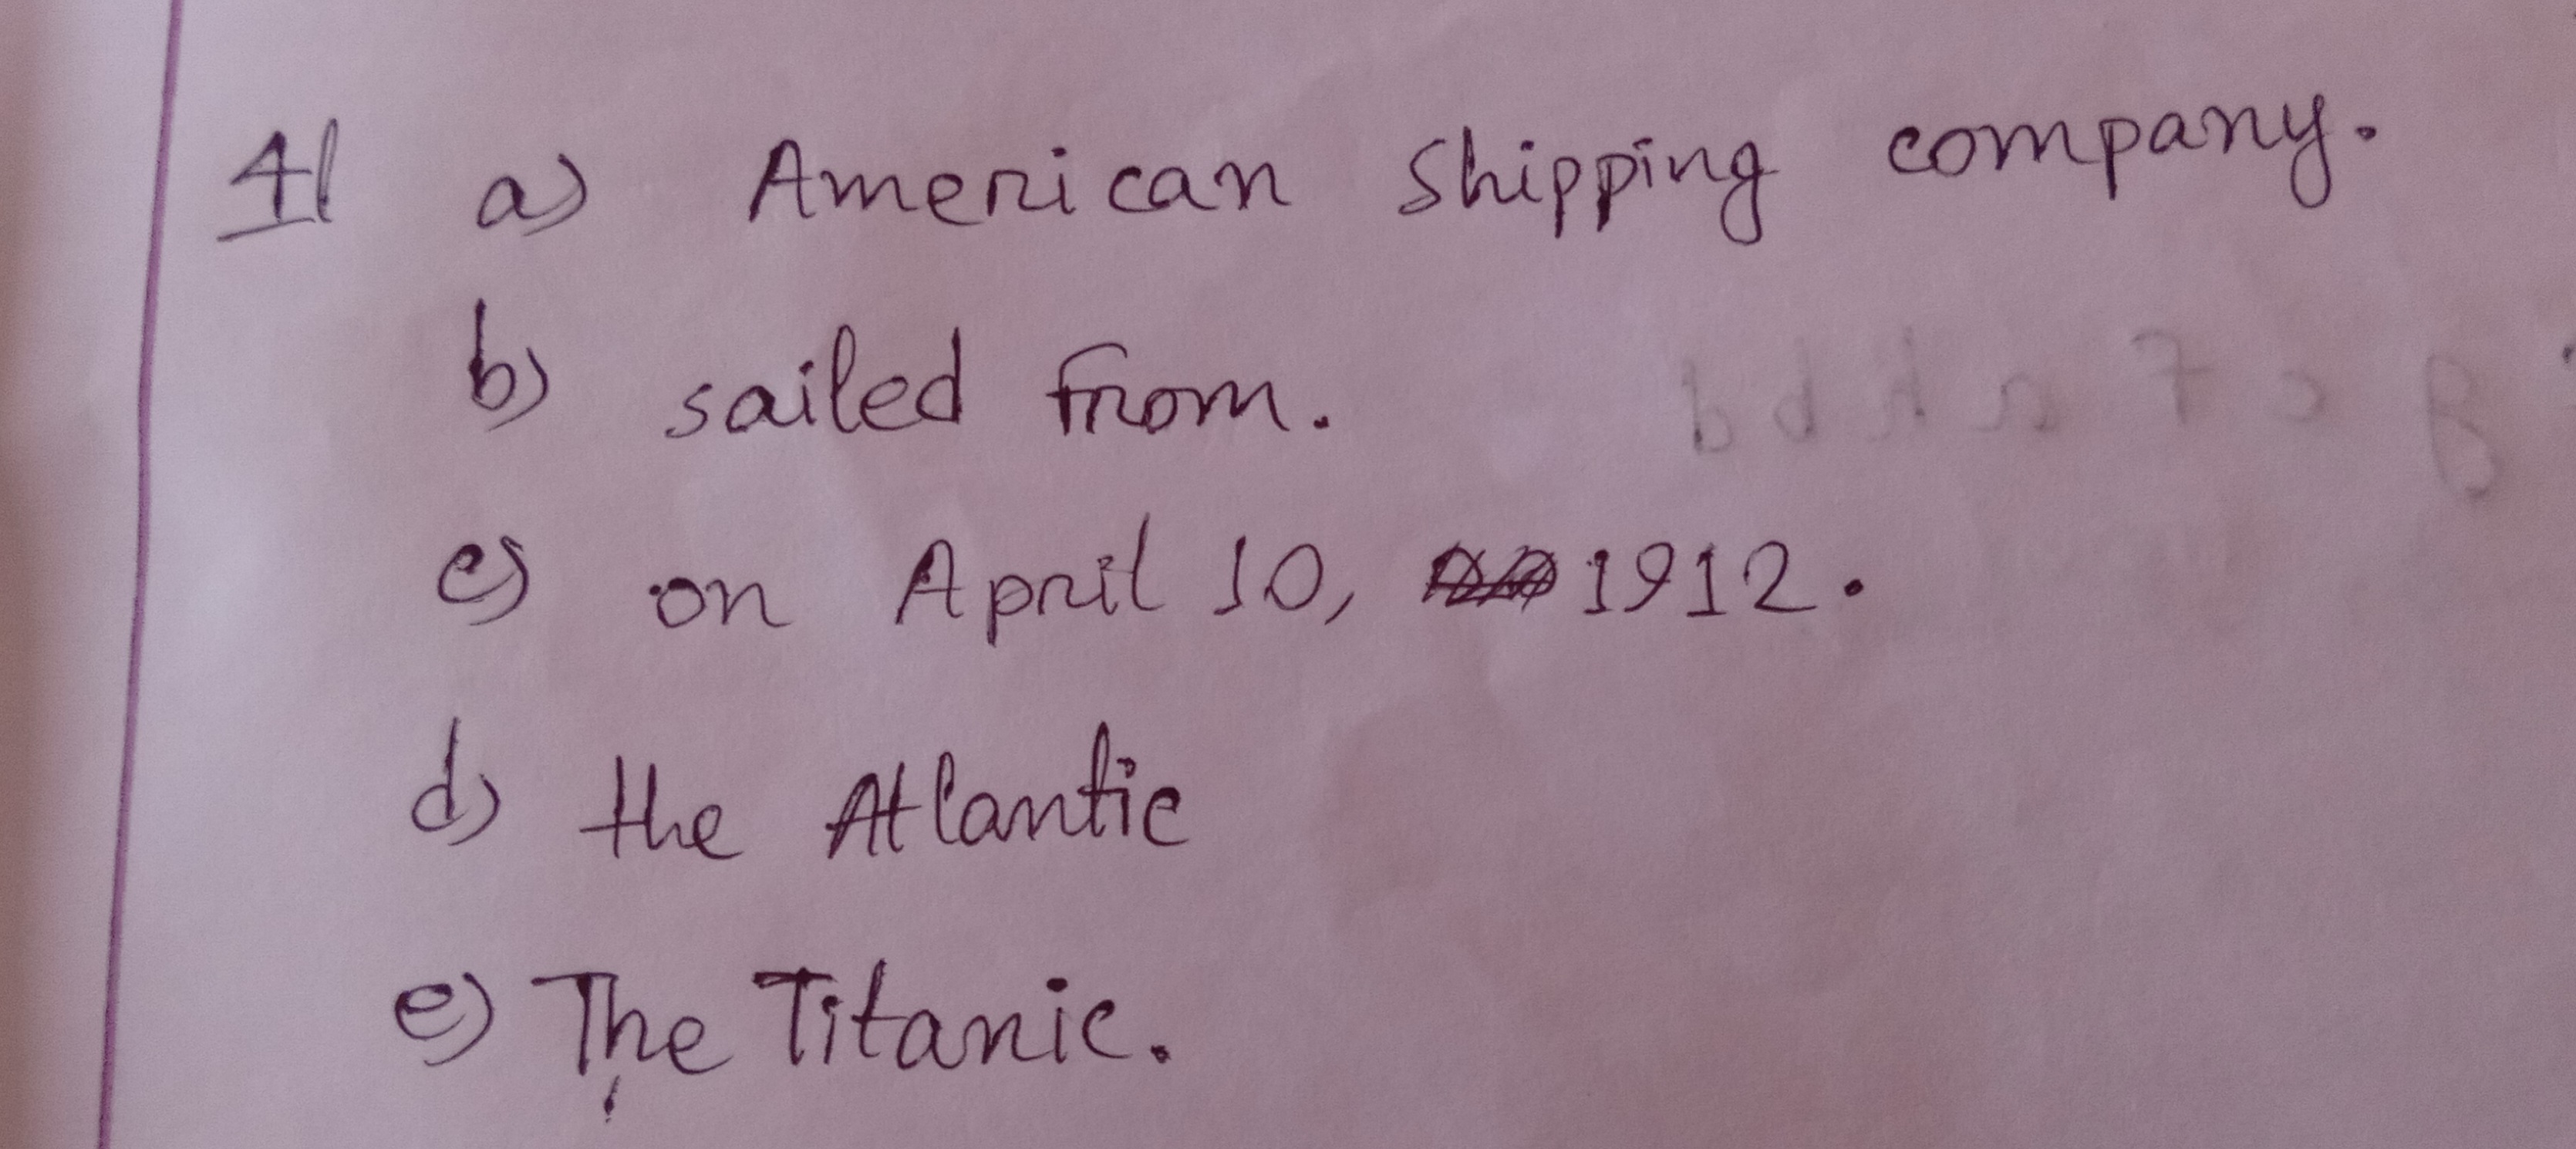 4| a) American Shipping company.
b) sailed from.
c) on April 10, 1912.
d) the Atlantic
e) The Titanic.